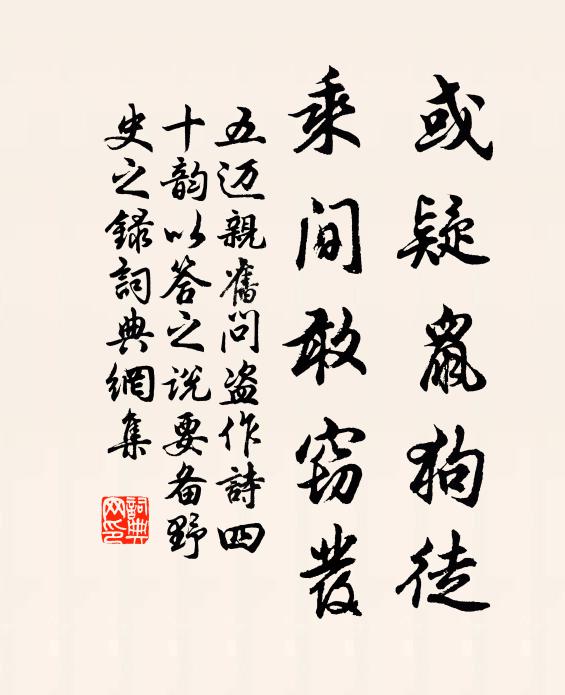 或疑鼠狗徒
乘间敢窃发
五迈亲旧问盗作诗四
十韵以答之说要备野
史之录词典网集
詞典网印